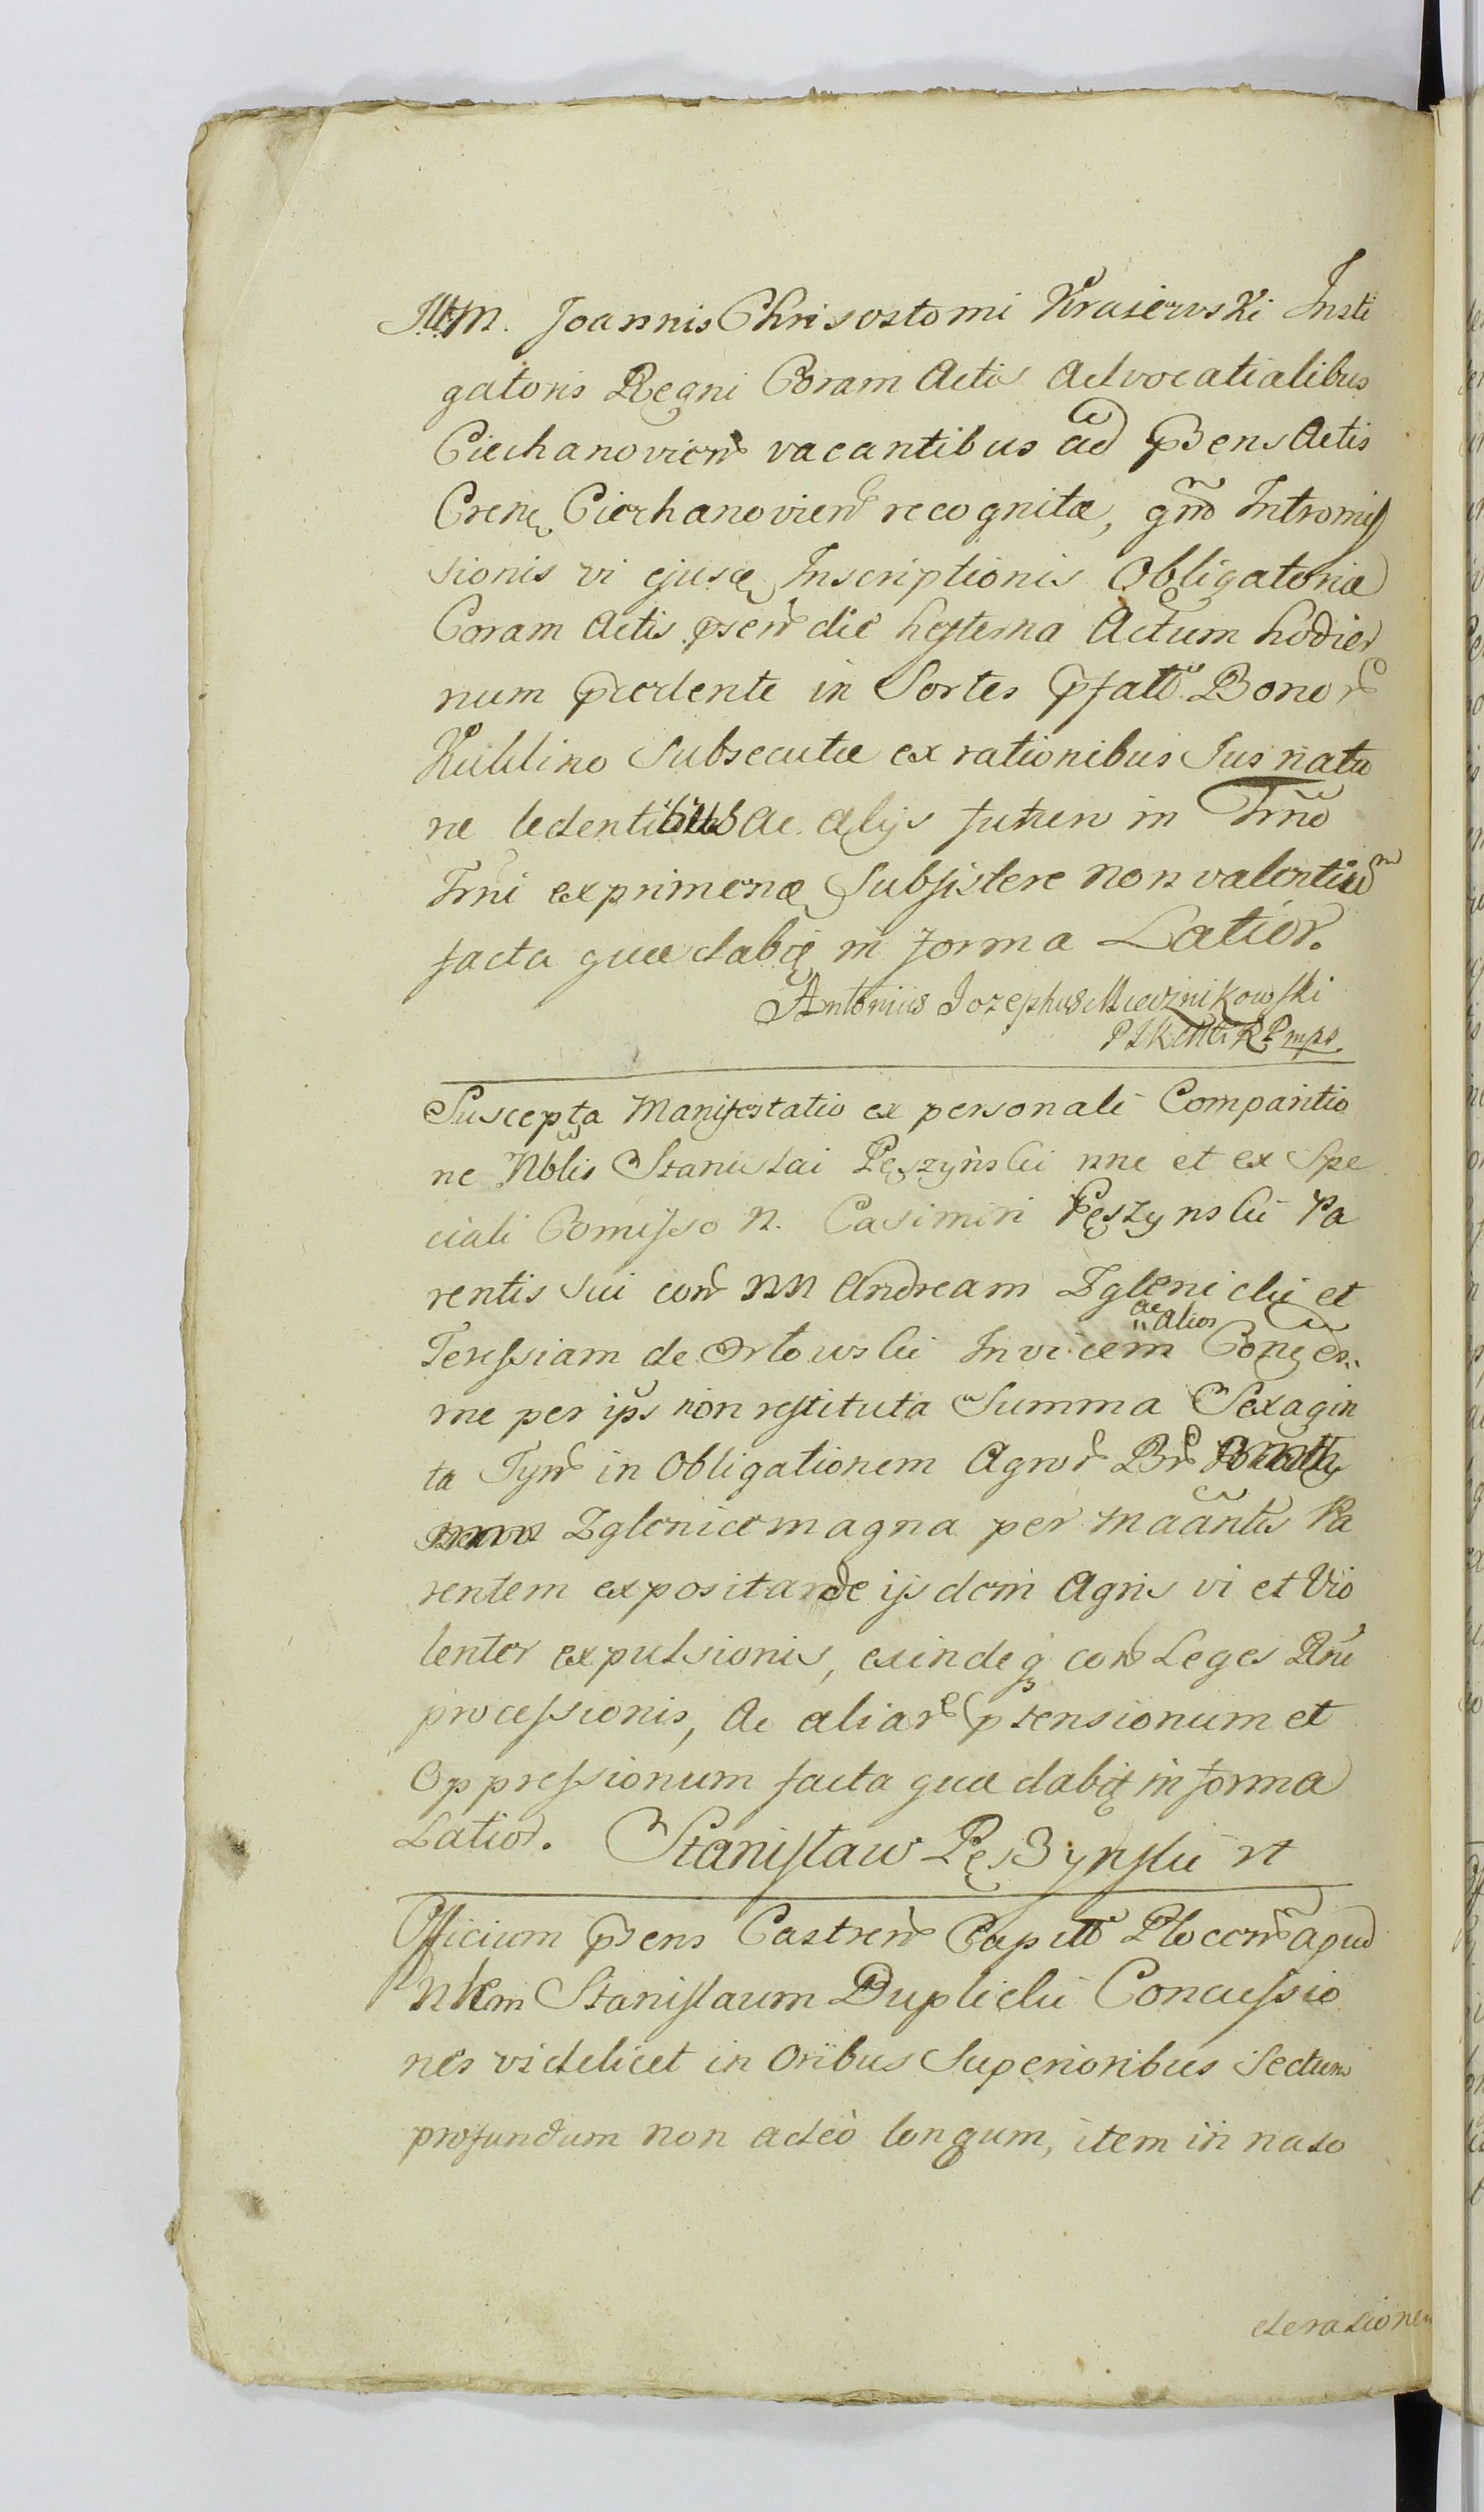 M. Joannis Chrisostomi Krajewski Insti
gatoris Regni Coram Actis Advocatialibus
Ciechanovien vacantibus ad psens Actis
Crens Ciechanovien recognitæ, qm̃o Intromis
sionis vi ejusq Inscriptionis Obligatoriæ
Coram Actis psen die hesterna Actum hodier
num præcedente in Sortes pfatt Bonor
subsecutæ ex rationibus Jus natu
re ledentibus ac alijs in Trm̃o
Trni exprimen Subsistere non valentiu
facta quæ dabit in forma Latior.
Antonius Jozephus Miecznikowski
mps
Suscepta Manifestatio ex personali Comparitio
ne Nblis Stanislai Pęszyński nne et ex Spe
ciali Comisso N. Casimiri Pęszynski Pa
rentis sui con NN Andream Zglenicki et
ac alios
Teressiam de Orłowski Invicem Conjes
me per ips non restituta Summa Sexagin
ta Tynf in Obligationem Agror Br
Zglenice magna per maantis Pa
rentem expositar de ijsdem Agris vi et Vio
lenter expulsionis, exindeq con Leges Rni
processionis, Ac aliar ptensionum et
Oppressionum facta quæ dabit in forma
Latior. Stanisław Pęszynski
Officium psens Castren Capitt Plocen apud
Nblem Stanislaum Duplicki Concussio
nes videlicet in Oribus Superioribus Sectum
profundum non adeò longum, item in naso